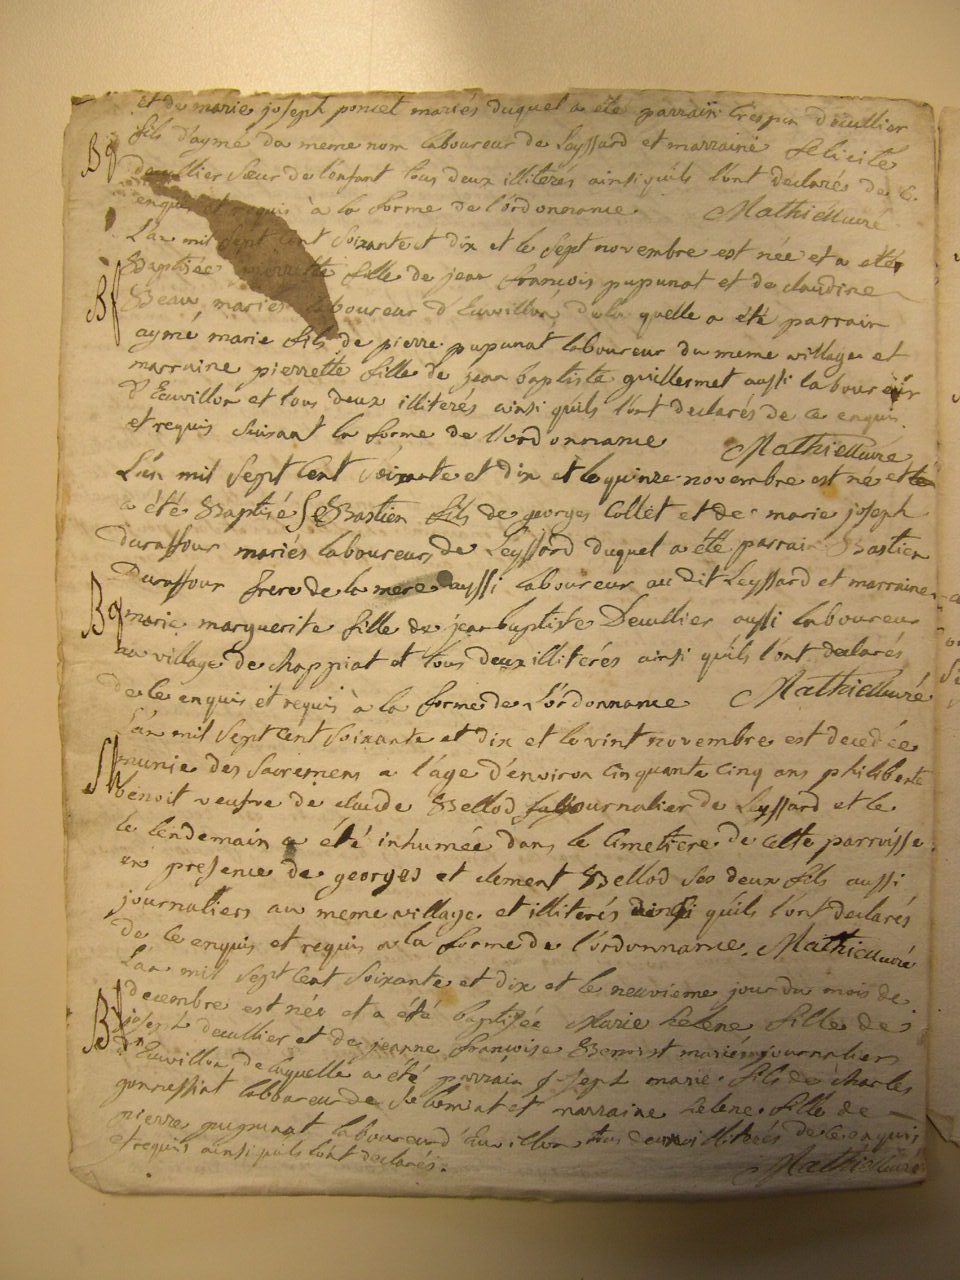 et de marie joseph poncet mariés duquel a été parrain Crespin Deullier
fils d'aymé du meme nom laboureur de Leyssard et marraine felicité
Bg
deullier sœur de l'enfant tous deux illiterés ainsi qu'ils l'ont declarés de ce
enquis et requis à la forme de l'ordonnance. Mathieu curé
L'an mil sept cent soixante et dix et le sept novembre est née et a eté
Bf
Baptisée pierrette fille de jean françois pupunat et de claudine
Beau, mariés laboureur d'Euvillon, de la quelle a été parrain
aymé marie fils de pierre pupunat laboureur du meme village et
marraine pierrette fille de jean baptiste guillermet aussi laboureur
d'Euvillon et tous deux illiterés ainsi qu'ils l'ont declarés de ce enquis
et requis suivant la forme de l'ordonnance Mathieu curé
L'an mil sept cent soixante et dix et le quinze novembre est né et
a été Baptisé SeBastien fils de georges Collet et de marie joseph
Duraffour mariés laboureur de Leyssard duquel a été parrain Bastien
Duraffour frere de la mere aussi laboureur au dit Leyssard et marraine
Bg
marie marguerite fille de jean baptiste Deullier aussi laboureur
au village de chappiat et tous deux illiterés ainsi qu'ils l'ont declarés
de ce enquis et requis à la forme de l'ordonnance Mathieu curé
L'an mil sept cent soixante et dix et le vint novembre est decedée
Sf
munie des sacremens a l'age d'environ cinquante cinq ans philiberte
benoit veufve de claude Bellod journalier de Leyssard et le
le lendemain a été inhumée dans le cimetiere de cette parroisse
en presence de georges et clement Bellod ses deux fils aussi
journaliers au meme village et illiterés ainsi qu'ils l'ont declarés
de ce enquis et requis a la forme de l'ordonnance. Mathieu curé
L'an mil sept cent soixante et dix et le neuvieme jour du mois de
decembre est née et a été baptisée Marie helene fille de
Bf
joseph deullier et de jeanne françoise Benoist mariés journaliers
d'Euvillon de laquelle a été parrain joseph marie fils de charles
gonnessiat labboureur de et marraine helene fille de
pierre pupunat laboureur d'Euvillon tous deux illiterés de ce enquis
et requis ainsi qu'ils l'ont declarés. Mathieu curé